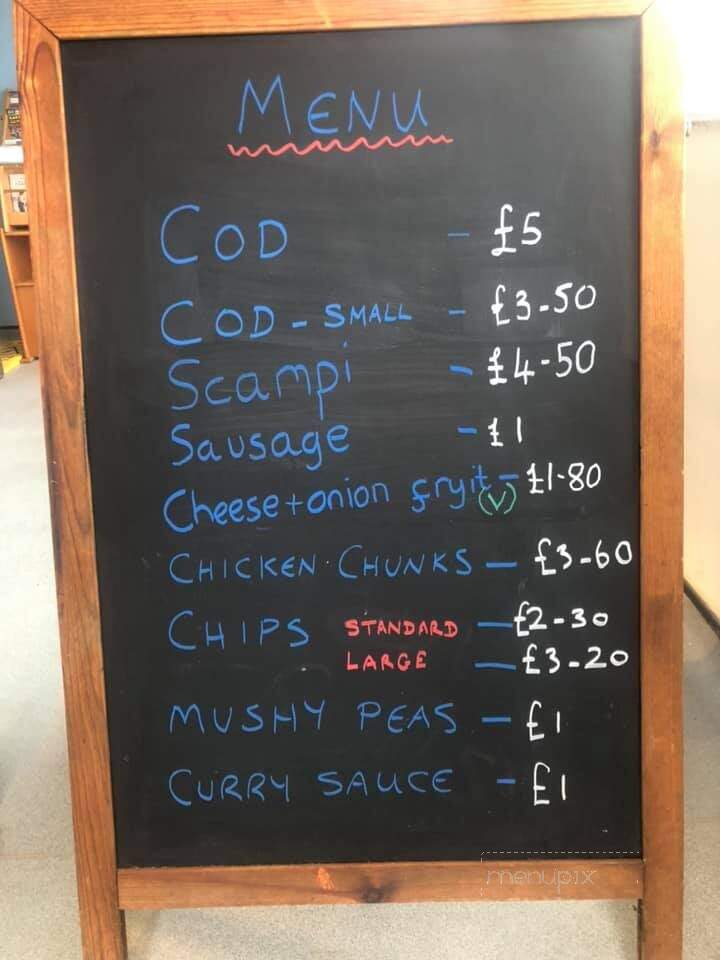 MENU
COD - £5
COD - SMALL - £3-50
Scampi - £4-50
Sausage - £1
Cheese+onion fryit - £1-80
(V)
CHICKEN CHUNKS - £3-60
CHIPS STANDARD - £2-30
LARGE - £3-20
MUSHY PEAS - £1
CURRY SAUCE - £1
menupix